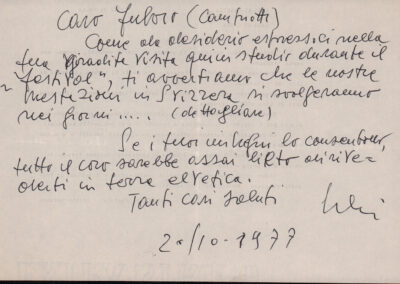 Caro Fulvio (Camfiotti)
Come da desiderio espressoci nella
tua gradita visita qui in studio durante il
"festival", ti avvertiamo che le nostre
prestazioni in Svizzera si svolgeranno
nei giorni ..... (dettagliare)
Se i tuoi impegni lo consentono,
tutto il coro sarebbe assai lieto di rive=
derti in terra elvetica.
Tanti cari saluti
10-1977